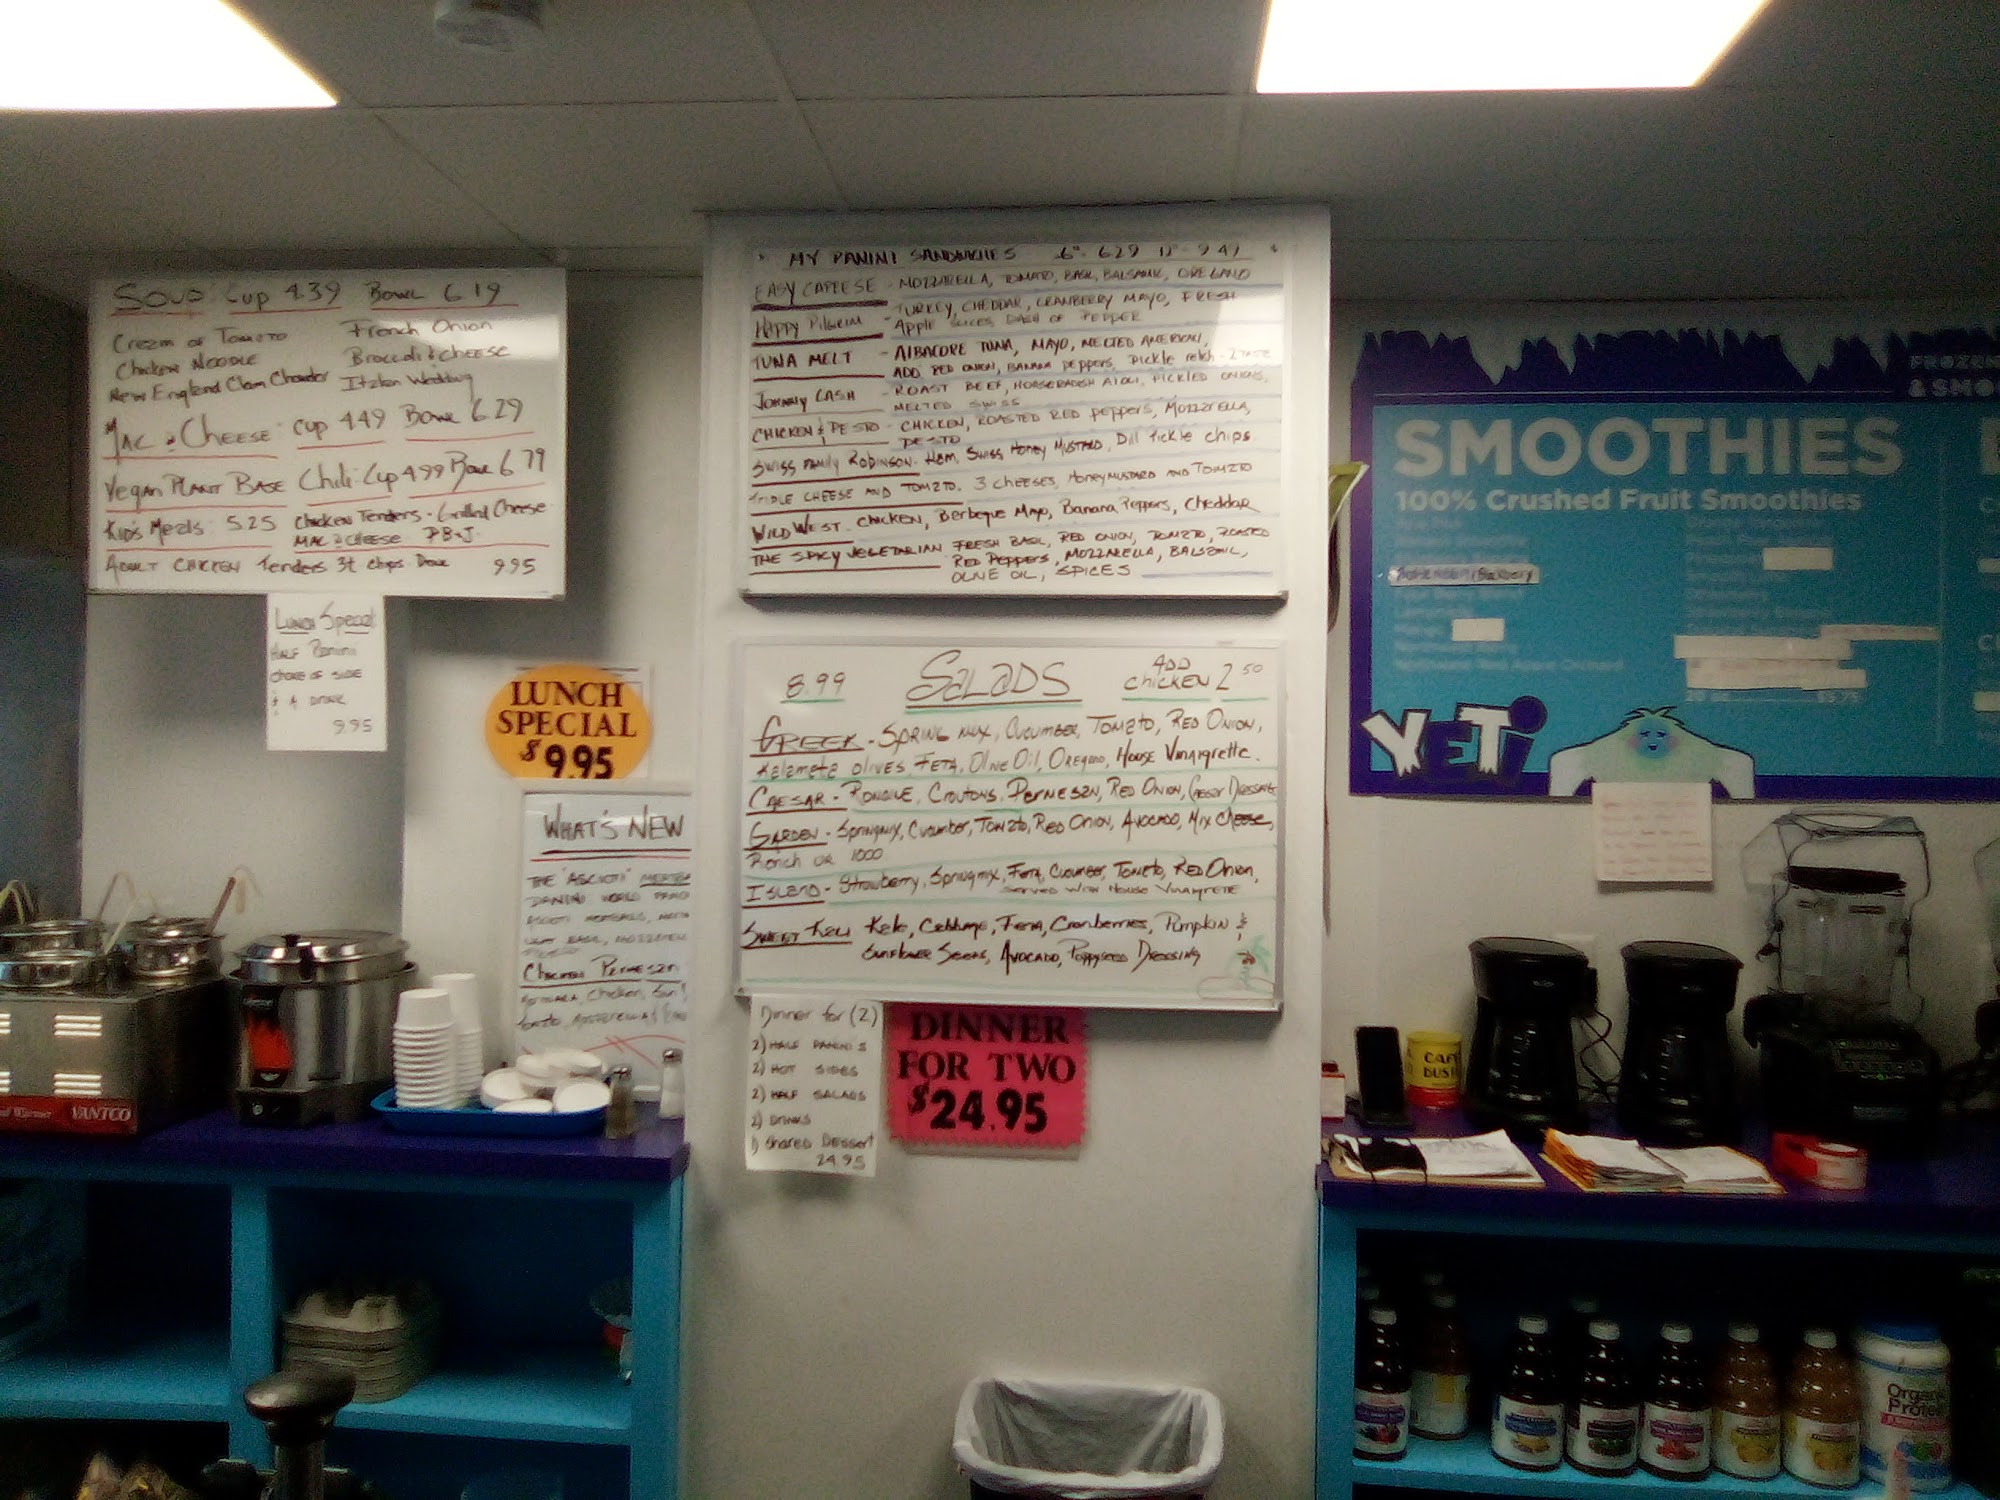 SOUP: Cup 4.39 Bowl 6.19
Cream of Tomato French Onion
Chicken Noodle Broccoli & Cheese
New England Clam Chowder Italian Wedding
Mac & Cheese: cup 4.49 Bowl 6.29
Vegan Plant Base Chili Cup 4.99 Bowl 6.79
Kid's Meals: 5.25 Chicken Tenders - Grilled Cheese
Mac & Cheese PB&J
Adult Chicken Tenders 3t chips Drink 9.95
Lunch Special
Half Panini
choice of side
& A DRINK
9.95
LUNCH
SPECIAL
$9.95
WHAT'S NEW
THE "ASCIOTI"
PANINI WORLD
ASCIOTI MEATBALLS,
Chicken Parmesan
Marinara, Chicken,
MY PANINI SANDWICHES 6" - 6.29 12" - 9.47
EASY CAPRESE - MOZZARELLA, TOMATO, BASIL, BALSAMIC, OREGANO
HAPPY PILGRIM - TURKEY, CHEDDAR, CRANBERRY MAYO, FRESH
Apple Slices, DASH OF PEPPER
TUNA MELT - ALBACORE TUNA, MAYO, MELTED AMERICAN,
ADD RED ONION, BANANA PEPPERS, Pickle relish
JOHNNY CASH - ROAST BEEF, HORSERADISH AIOLI, PICKLED ONIONS,
MELTED SWISS
CHICKEN & PESTO - CHICKEN, ROASTED RED PEPPERS, MOZZARELLA,
PESTO
SWISS FAMILY ROBINSON - HAM, SWISS, HONEY MUSTARD, Dill Pickle chips
TRIPLE CHEESE AND TOMATO. 3 CHEESES, HONEY MUSTARD AND TOMATO
WILD WEST - CHICKEN, Barbeque Mayo, Banana Peppers, Cheddar
THE SPICY VEGETARIAN FRESH BASIL, RED ONION, TOMATO, ROASTED
RED PEPPERS, MOZZARELLA, BALSAMIC,
OLIVE OIL, SPICES
8.99 SALADS ADD CHICKEN 2.50
GREEK - SPRING MIX, CUCUMBER, TOMATO, RED ONION,
Kalamata OLIVES, FETA, Olive Oil, OREGANO, HOUSE VINAIGRETTE.
CAESAR - ROMAINE, CROUTONS, PARMESAN, RED ONION, Caesar Dressing
GARDEN - Springmix, Cucumber, Tomato, Red Onion, Avocado, Mix Cheese,
Ranch OR 1000
ISLAND - Strawberry, Springmix, Feta, Cucumber, Tomato, Red Onion,
SERVED WITH HOUSE VINAIGRETTE
SWEET KALI Kale, Cabbage, Feta, Cranberries, Pumpkin &
Sunflower Seeds, Avocado, Poppyseed Dressing
Dinner for (2)
2) HALF PANINIS
2) HOT SIDES
2) HALF SALADS
2) DRINKS
1) Shared Dessert
24.95
DINNER
FOR TWO
$24.95
FROZEN
& SMO
SMOOTHIES
100% Crushed Fruit Smoothies
YETI
CAFE
BUST
VANTCO
Organic
Protein